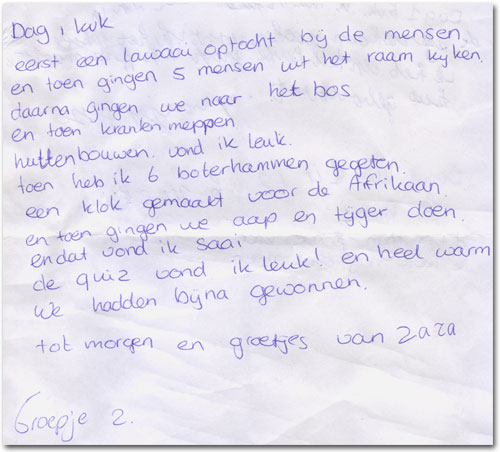 Dag, kuk
eerst een lawaai optocht bij de mensen
en toen gingen 5 mensen uit het raam kijken.
daarna gingen we naar het bos
en toen kranten meppen
huttenbouwen. vond ik leuk.
toen heb ik 6 boterhammen gegeten.
een klok gemaakt voor de Afrikaan.
en toen gingen we aap en tijger doen.
en dat vond ik saai
de quiz vond ik leuk! en heel warm
We hadden bijna gewonnen.
tot morgen en groetjes van zaza
Groepje 2.